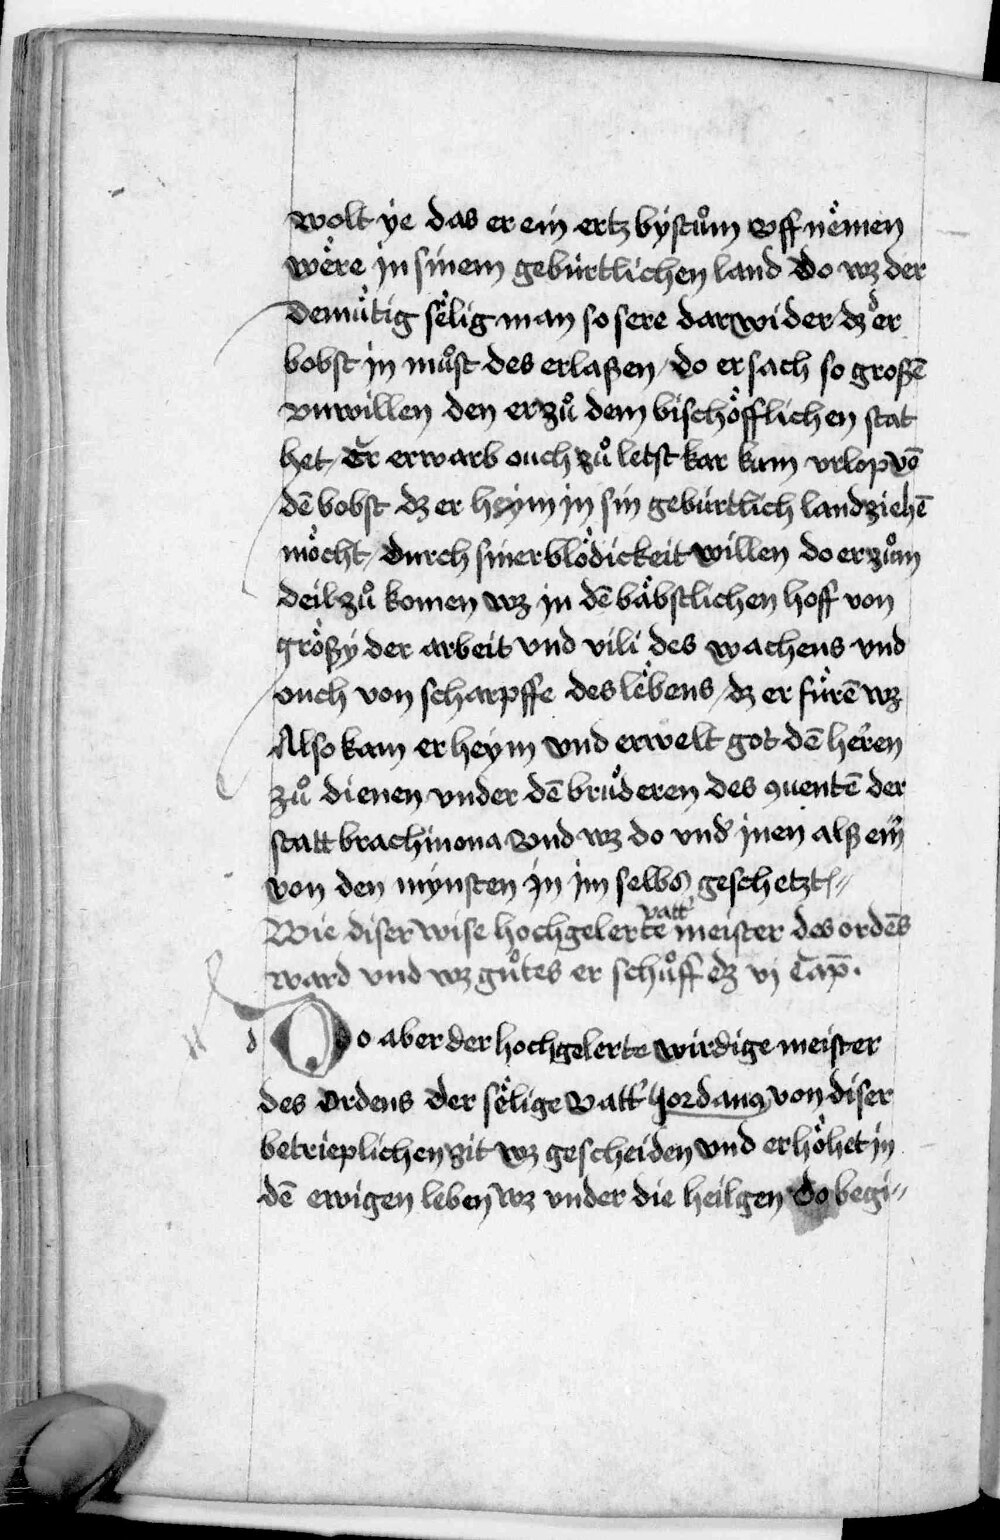 wolt ye das er ein ertz bystům vff nemen
wͤere jn sinem gebürtlichen land do wz der
demütig sͤelig man so sere darwider dz dͤer
bobst in můst des erlaßen / do er sach so großē
vnwillen den er zů dem bischöfflichen stat
het / Er erwarb ouch zů letst kar kum vrlop vō
dē bobst dz er heym jn sin gebürtlich land ziehē
möcht / durch siner blödickeit willen do er zům
deil zů komen wz jn dē bäbstlichen hoff von
größy der arbeit vnd vili des wachens vnd
ouch von scharpffe des lͤebens / dz er fürē wz
Also kam er heym vnd erwelt got dē herren
zů dienen vnder dē brüderen des 9uentē der
statt brachinona vnd wz do vnd' jnen alß ein'
von den mynsten jn jm selbs geschetzt //
vatt'
Wie diser wise hochgelerte meister des ordēs
ward vnd wz gůtes er schůff dz vj Cap̄.
d
Do aber der hochgelerte wirdige meister
des Ordens der sͤelige vatt' Jordan9 von diser
betrieplichen zit wz gescheiden vnd erhöhet in
dē ewigen leben wz vnder die heilgen do begi//